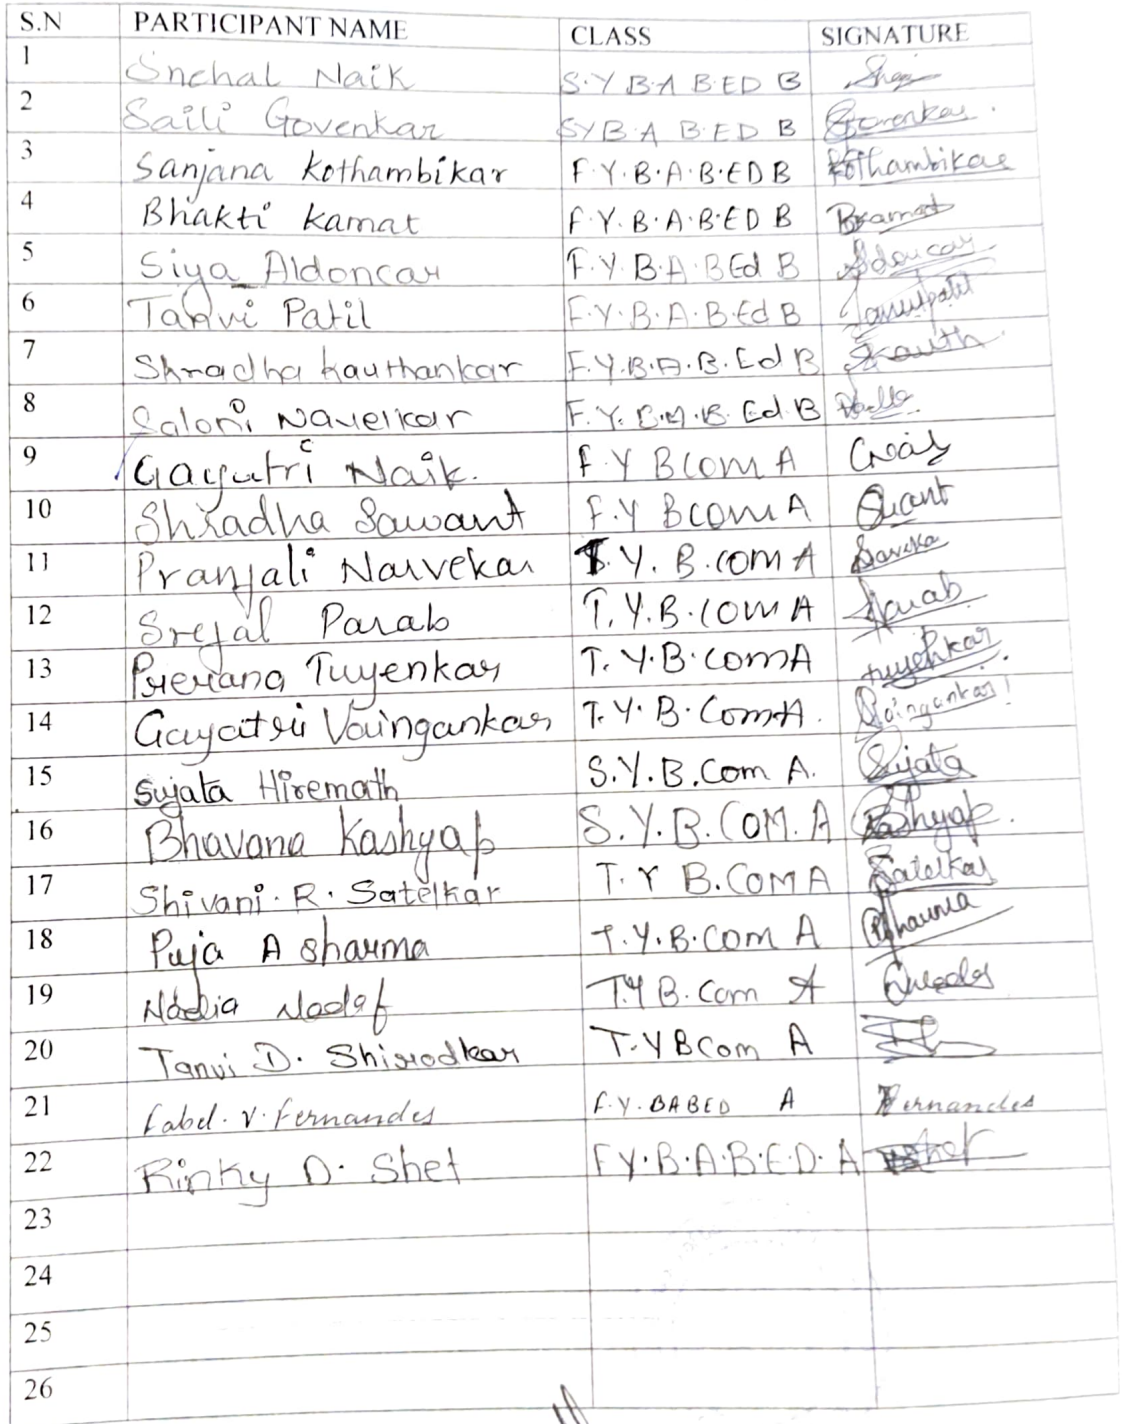 S.N PARTICIPANT NAME CLASS SIGNATURE
1 Snehal Naik S.Y B.A B.ED B
2 Saili Govenkar SYB.A B.ED B Govenkar.
3 Sanjana Kothambikar F.Y.B.A.B.ED B Kothambikar
4 Bhakti Kamat F.Y.B.A.B.ED B Bkamat
5 Siya Aldoncar F.Y.B.A.BEd B Aldoncar
6 Tanvi Patil F.Y.B.A.B.Ed B Tanvipatil
7 Shradha Kauthankar F.Y.B.A.B.Ed B Skauth
8 Saloni Navelkar F.Y.B.A.B.Ed.B
9 Gayatri Naik. F.Y BCOM A
10 Shradha Sawant F.Y BCOM A
11 Pranjali Narvekar S.Y.B.COM A
12 Srejal Parab T.Y.B.COM A Parab
13 Prerana Tuyenkar T.Y.B.COMA Tuyenkar
14 Gayatri Vaingankar T.Y.B.ComA. Vaingankar
15 Sujata Hiremath S.Y.B.Com A. Sujata
16 Bhavana Kashyap S.Y.B.COM.A Kashyap.
17 Shivani.R.Satelkar T.Y B.COM A Satelkar
18 Puja A Sharma T.Y.B.COM A Psharma
19 Nadia Nadaf T.Y B.Com A
20 Tanvi D. Shirodkar T.YBCom A
21 Label.V.Fernandes F.Y.BABED A Fernandes
22 Rinky D. Shet FY.B.A.B.E.D.A Shet
23
24
25
26